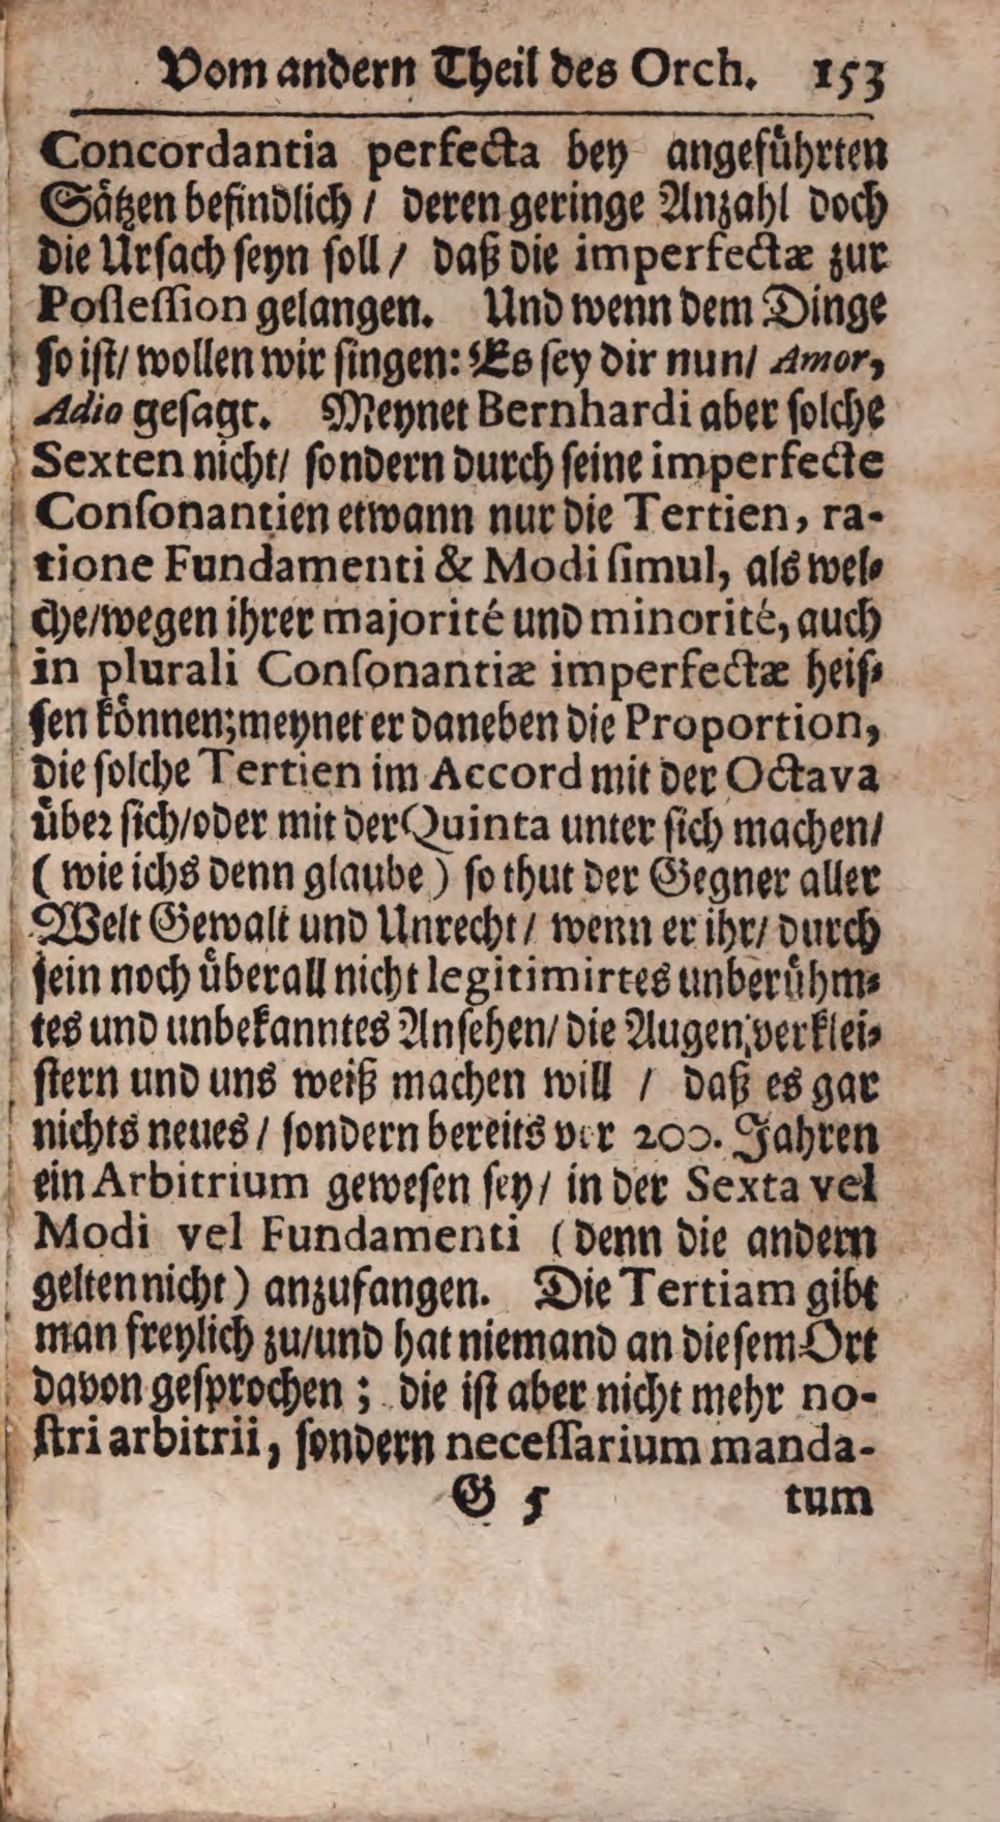 Vom andern Theil des Orch. 153
Concordantia perfecta bey angefuͤhrten
Saͤtzen befindlich / deren geringe Anzahl doch
die Ursach seyn soll / daß die imperfectæ zur
Possession gelangen. Und wenn dem Dinge
so ist/ wollen wir singen: Es sey dir nun/ Amor,
Adio gesagt. Meynet Bernhardi aber solche
Sexten nicht/ sondern durch seine imperfecte
Consonantien etwann nur die Tertien, ra-
tione Fundamenti & Modi simul, als wel-
che/wegen ihrer majorité und minorité, auch
in plurali Consonantiæ imperfectæ heis-
sen koͤnnen;meynet er daneben die Proportion,
die solche Tertien im Accord mit der Octava
uͤber sich/oder mit der Quinta unter sich machen/
( wie ichs denn glaube ) so thut der Gegner aller
Welt Gewalt und Unrecht / wenn er ihr/ durch
sein noch uͤberall nicht legitimirtes unberuͤhm-
tes und unbekanntes Ansehen/ die Augen verklei-
stern und uns weiß machen will / daß es gar
nichts neues / sondern bereits vor 200. Jahren
ein Arbitrium gewesen sey/ in der Sexta vel
Modi vel Fundamenti ( denn die andern
gelten nicht ) anzufangen. Die Tertiam gibt
man freylich zu/und hat niemand an diesem Ort
davon gesprochen ; die ist aber nicht mehr no-
stri arbitrii, sondern necessarium manda-
G 5 tum